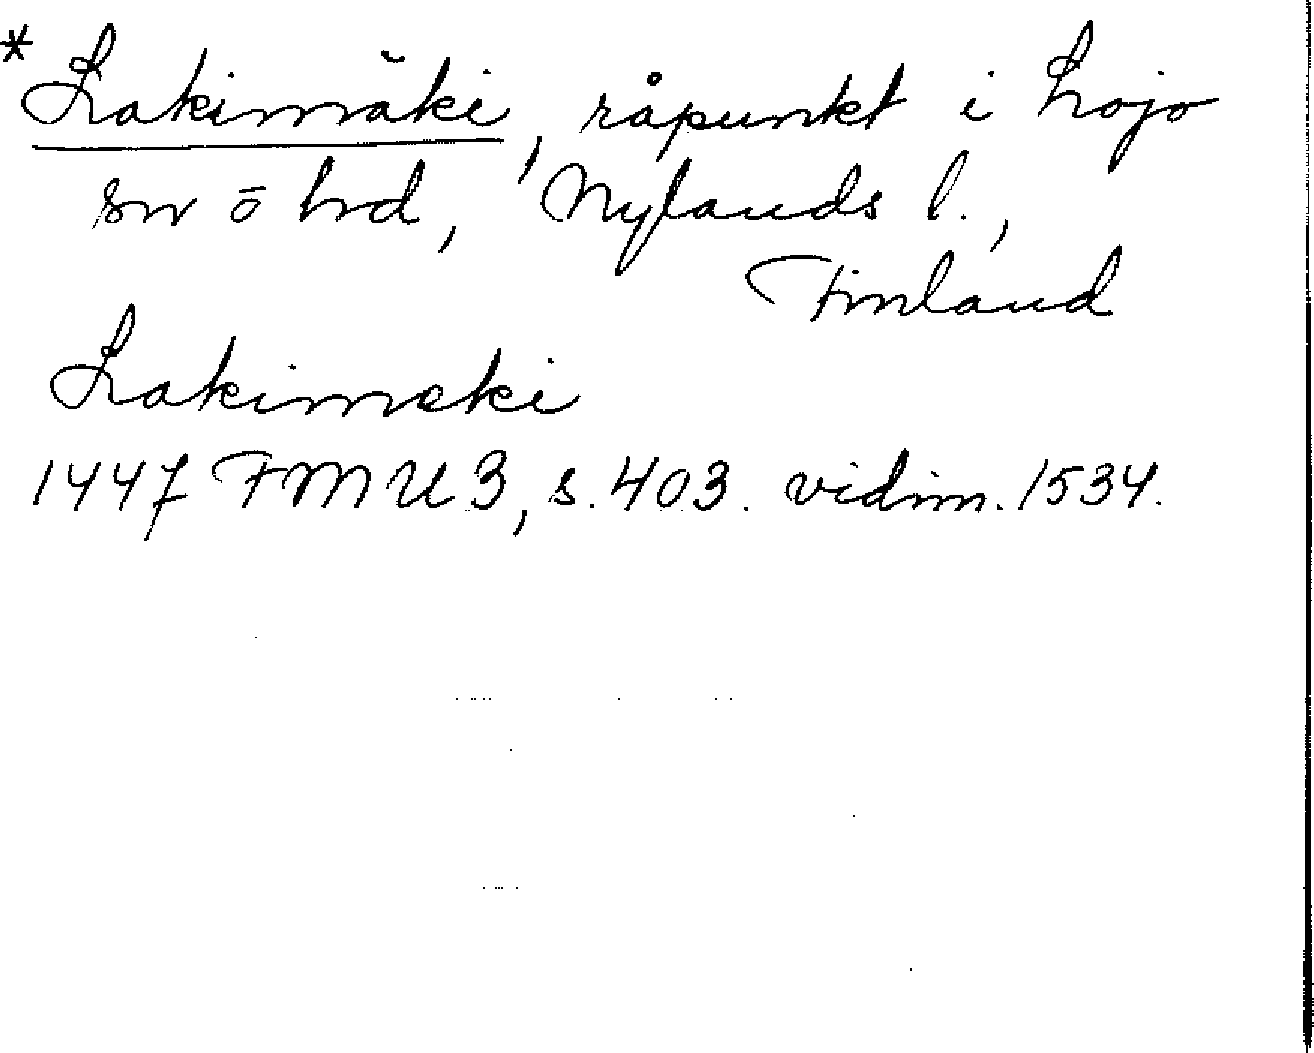 * Lakimäki, råpunkt i Lojo
sn o hd, Nylands l.,
Finland
Lakimeki
1447 FMU 3, s. 403. vidim. 1534.